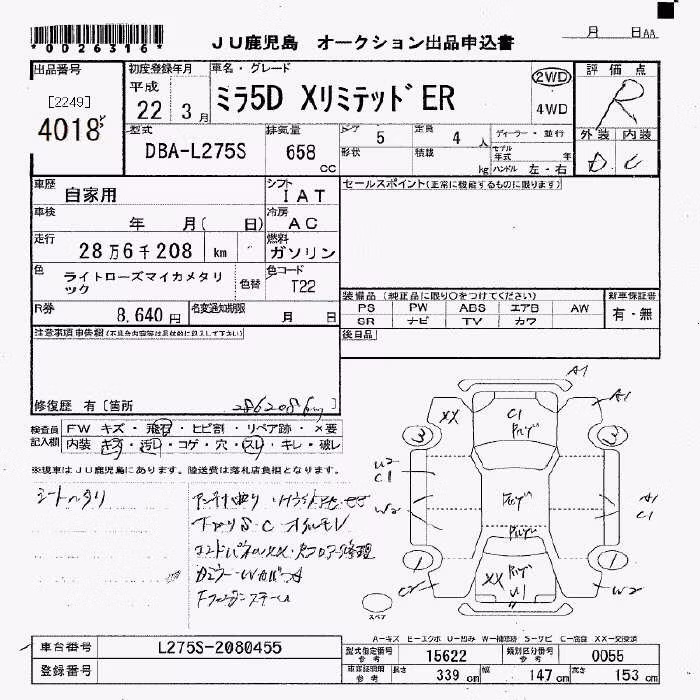 *0026316*
JU鹿児島 オークション出品申込書
月 日AA
出品番号
[2249]
4018
初度登録年月
平成
22 3月
車名・グレード
ミラ5D XリミテッドER
2WD
4WD
評価点
R
外装 内装
D C
型式
DBA-L275S
排気量
658 cc
ドア 5
形状
定員 4 人
積載 kg
ディーラー・並行
モデル年式 年
ハンドル 左・右
車歴 自家用
シフト IAT
車検 年 月( 日)
冷房 AC
走行 28万6千208 km
燃料 ガソリン
色 ライトローズマイカメタリック
色替
色コード T22
R券 8,640円
名変通知期限 月 日
セールスポイント(正常に機能するものに限ります)
装備品(純正品に限り○をつけてください)
PS PW ABS エアB AW
SR ナビ TV カワ
新車保証書
有・無
後日品
注意事項申告欄(不具合内容等は具体的に記入して下さい)
修復歴 有[箇所
286208km]
検査員記入欄
FW キズ・飛石・ヒビ割・リペア跡・×要
内装 キズ・汚レ・コゲ・穴・スレ・キレ・破レ
※現車はJU鹿児島にあります。陸送費は落札店負担となります。
シートヘタリ
A1
A1
XX
C1
3
3
U2
C1
W2
A1
C1
1
1
C2
XX
U1
W2
スペア
A-キズ E-エクボ U-凹み W-補修跡 S-サビ C-腐食 XX-交換済
車台番号 L275S-2080455
登録番号
型式指定番号 参考 15622
類別区分番号 参考 0055
車検証明用 参考 長さ 339cm 幅 147cm 高さ 153cm